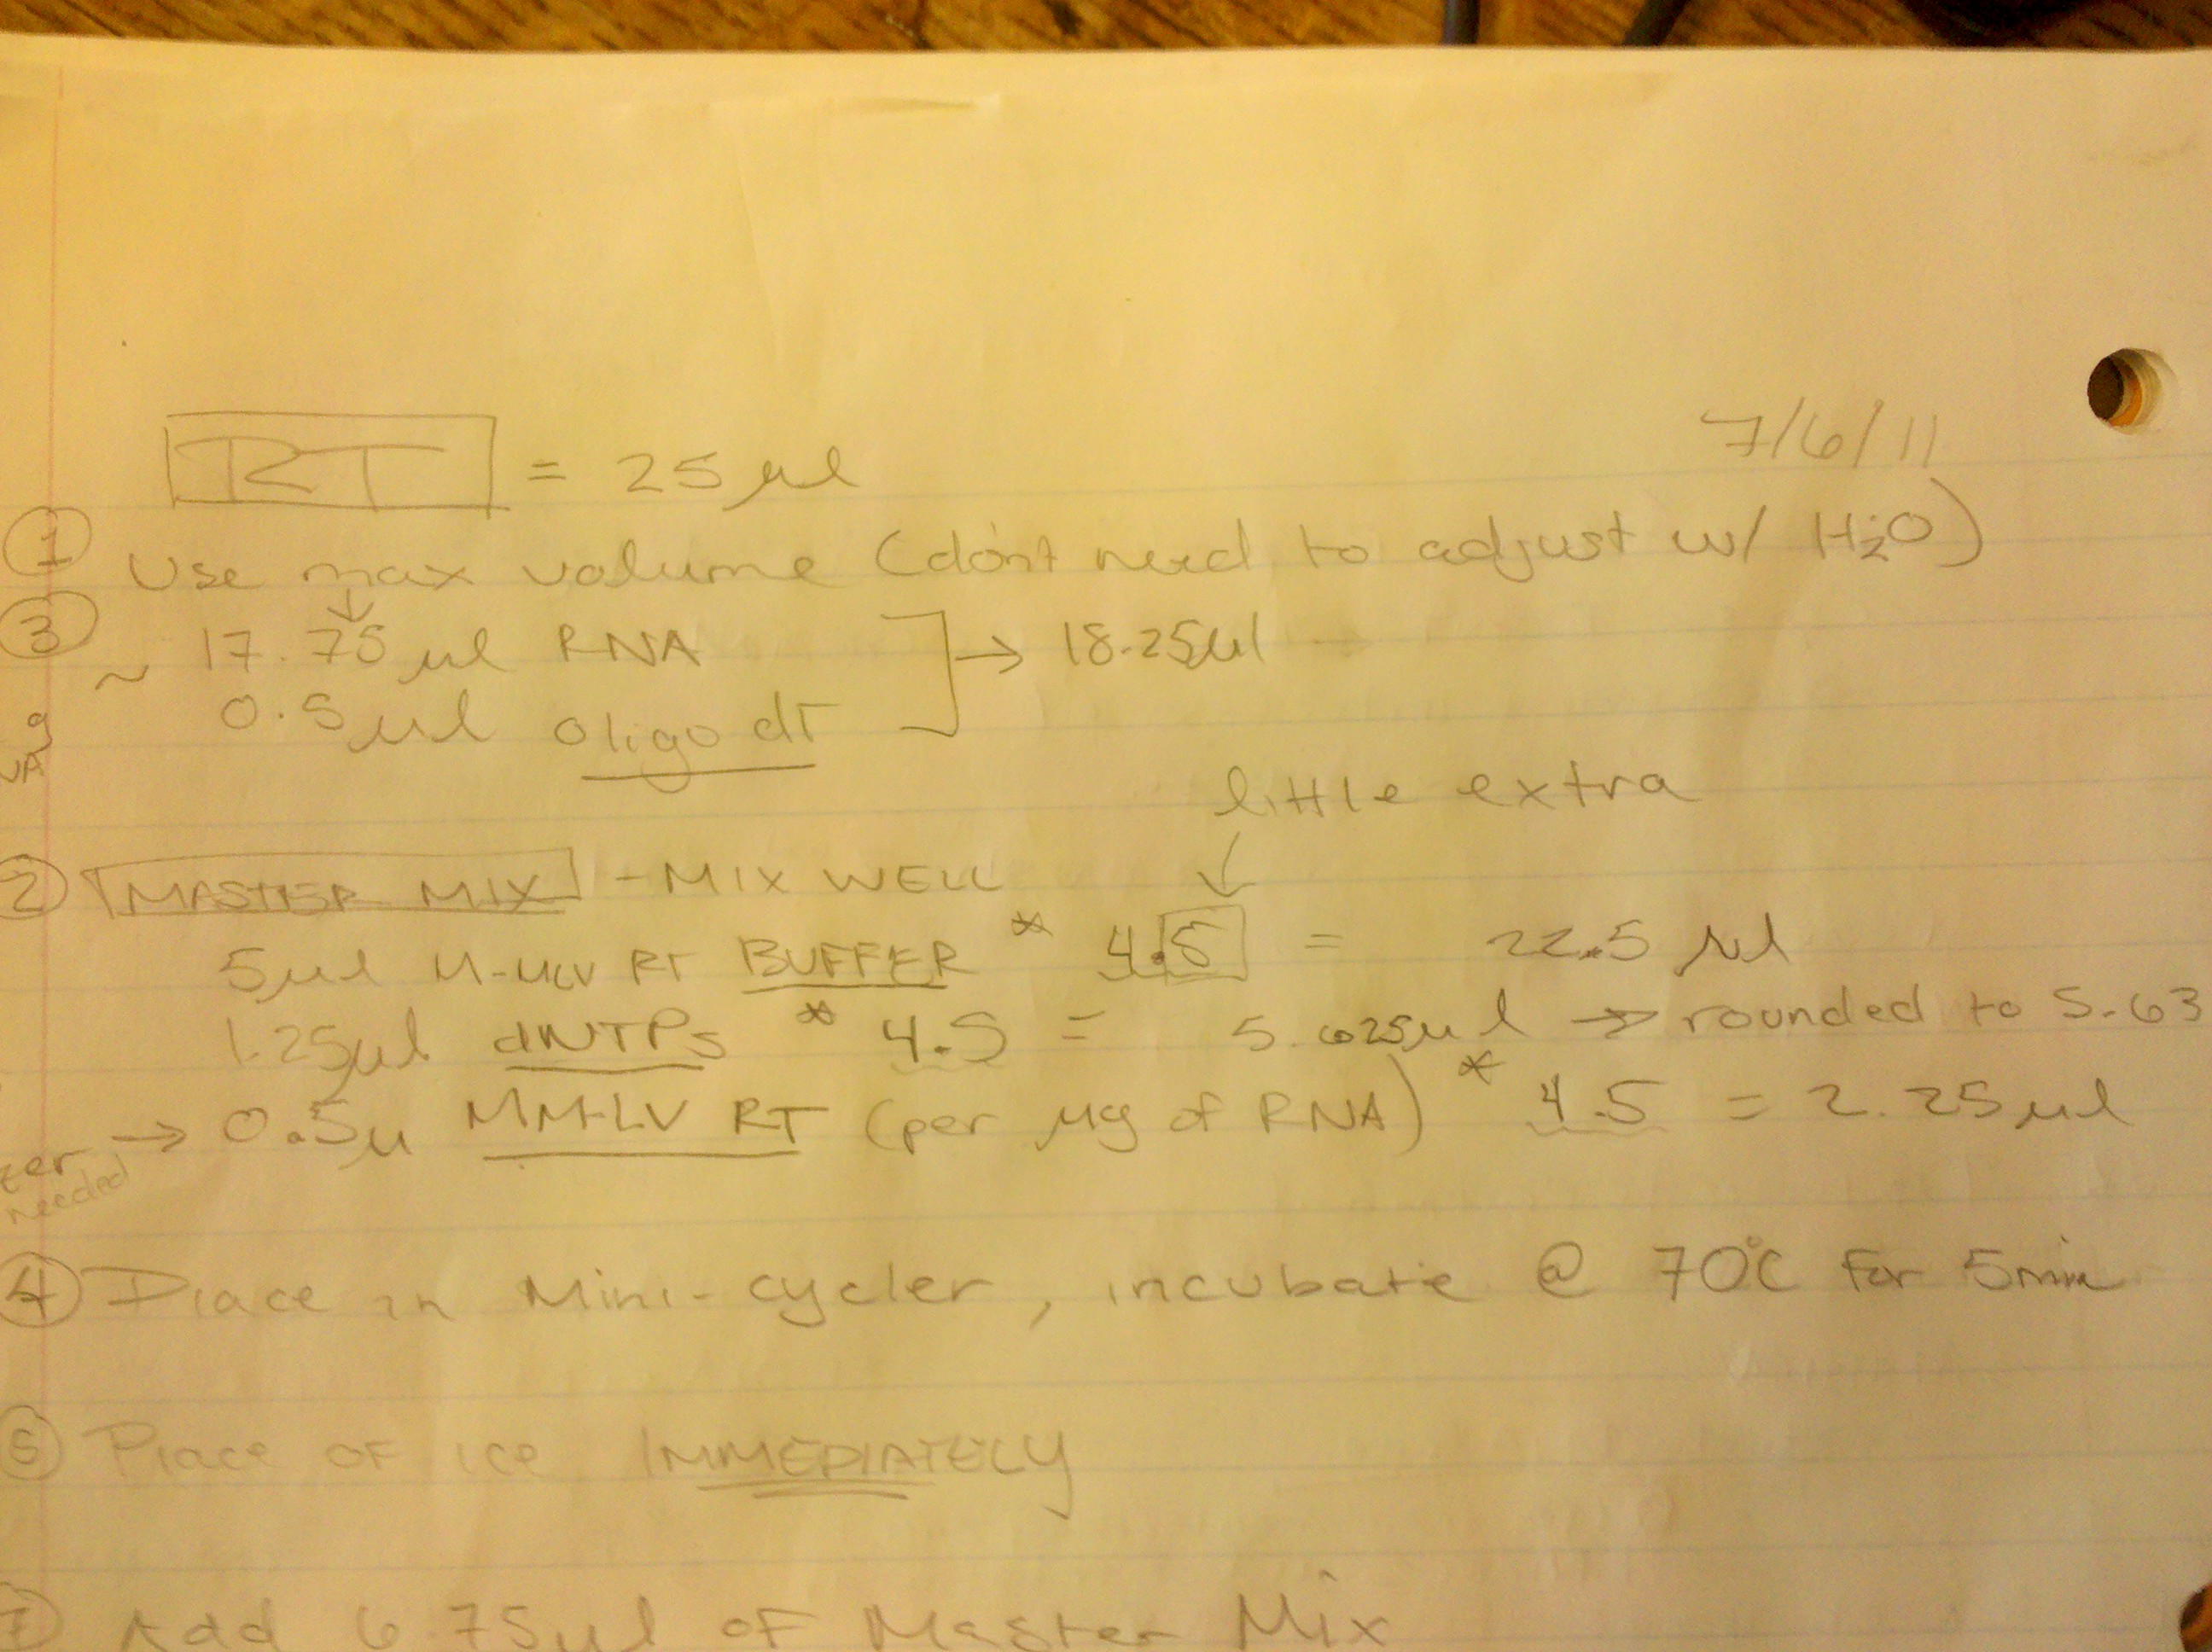 7/6/11
RT = 25 µl
① Use max volume (don't need to adjust w/ H2O)
③ ~ 17.75 µl RNA ] → 18.25µl
0.5 µl oligo dT
little extra
② MASTER MIX - MIX WELL
5µl M-MLV RT BUFFER * 4.5 = 22.5 µl
1.25µl dNTPs * 4.5 = 5.625µl → rounded to 5.63
→ 0.5µ MMLV RT (per µg of RNA) * 4.5 = 2.25µl
needed
④ Place in Mini-cycler, incubate @ 70°C for 5min
Place of ice IMMEDIATELY
⑦ Add 6.75µl of Master Mix